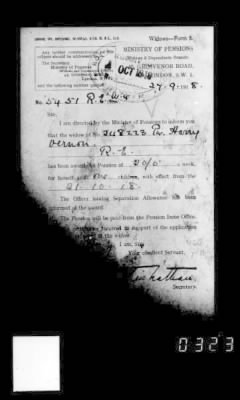 Widows—Form
Any further communication on this
subject should be addressed to—
The Secretary,
Ministry of Pensions
and the following number quoted:
MINISTRY OF PENSIONS
Widows & Dependants Branch
GROSVENOR ROAD,
LONDON, S.W. 1.
OCT 1918
27-9-1918.
No. 5451 R.E.
Sir,
I am directed by the Minister of Pensions to inform you
that the widow of No. 248223 Pr. Henry
Vernon.
R.E.
has been awarded a Pension of 20/5 a week,
for herself and one children, with effect from the
21-10-18.
The Officer issuing Separation Allowance has been
informed of the award.
The Pension will be paid from the Pension Issue Office.
in support of the application
of the widow
I am, Sir,
Your obedient Servant,
Secretary.
0323